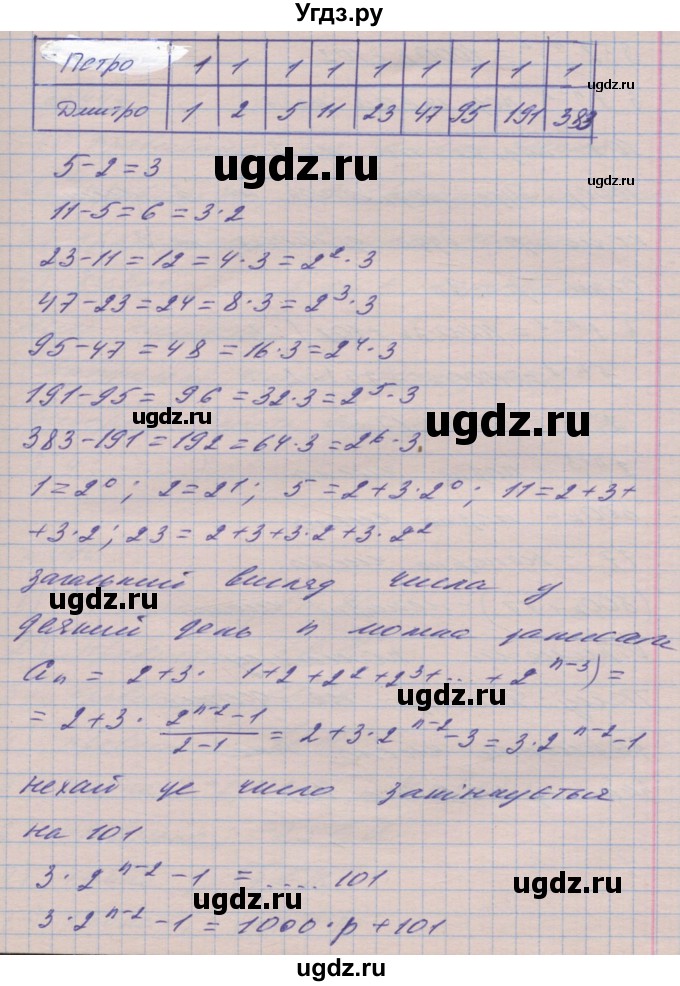 Угдз.ру
Петро 1 1 1 1 1 1 1 1 1
Дмитро 1 2 5 11 23 47 95 191 383
ugdz.ru
ugdz.ru
5-2=3
ugdz.ru
11-5=6=3·2
23-11=12=4·3=2²·3
47-23=24=8·3=2³·3
95-47=48=16·3=2⁴·3
191-95=96=32·3=2⁵·3
ugdz.ru
ugdz.ru
383-191=192=64·3=2⁶·3.
1=2⁰; 2=2¹; 5=2+3·2⁰; 11=2+3+
+3·2; 23=2+3+3·2+3·2²
загальний вигляд числа у
ugdz.ru
деякий день n можна записати
aₙ = 2+3· 1+2+2²+2³+...+2ⁿ⁻³)=
ugdz.ru
=2+3·(2ⁿ⁻²-1)/(2-1)=2+3·2ⁿ⁻²-3=3·2ⁿ⁻²-1
нехай це число закінчується
на 101
3·2ⁿ⁻²-1=....101
ugdz.ru
ugdz.ru
3·2ⁿ⁻²-1=1000·p+101
ugdz.ru